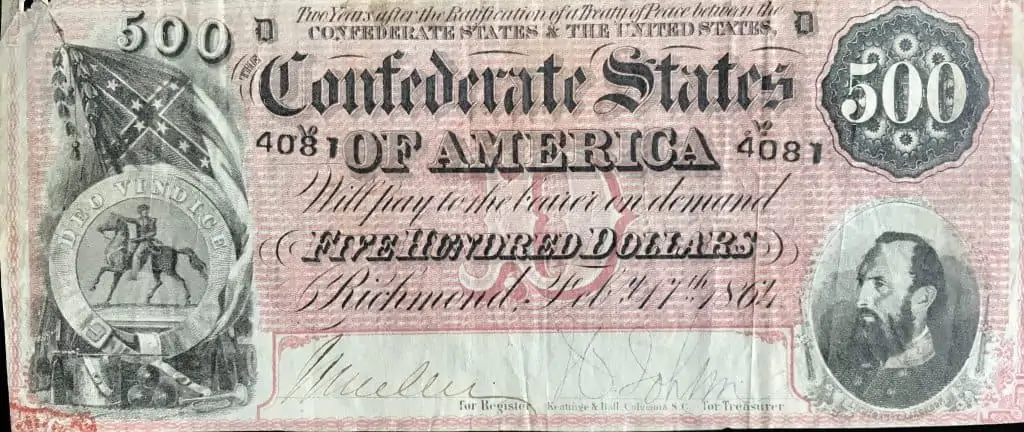 500 D Two Years after the Ratification of a Treaty of Peace between the D
CONFEDERATE STATES & THE UNITED STATES,
THE
Confederate States 500
4081 OF AMERICA 4081
Will pay to the bearer on demand
DEO VINDICE
FIVE HUNDRED DOLLARS
Richmond, Feby 17th, 1864
for Register Keatinge & Ball, Columbia S.C. for Treasurer